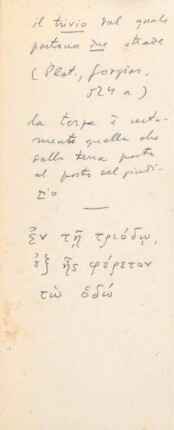 il trivio dal quale
partono due strade
(Plat., Gorgias,
524 a)
la terza è certa-
mente quella che
dalla terra porta
al posto del giudi-
zio
ἐν τῇ τριόδῳ,
ἐξ ἧς φέρετον
τὼ ὁδώ